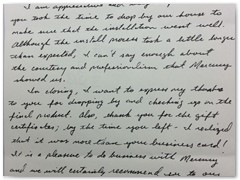 I am appreciative
you took the time to drop by our house to
make sure that the installation went well.
Although the install process took a little longer
than expected, I can't say enough about
the courtesy and professionalism that Mercury
showed us.
In closing, I want to express my thanks
to you for dropping by and checking up on the
final product. Also, thank you for the gift
certificates, by the time you left - I realized
that it was more than your business card!
It is a pleasure to do business with Mercury
and we will certainly recommend to our